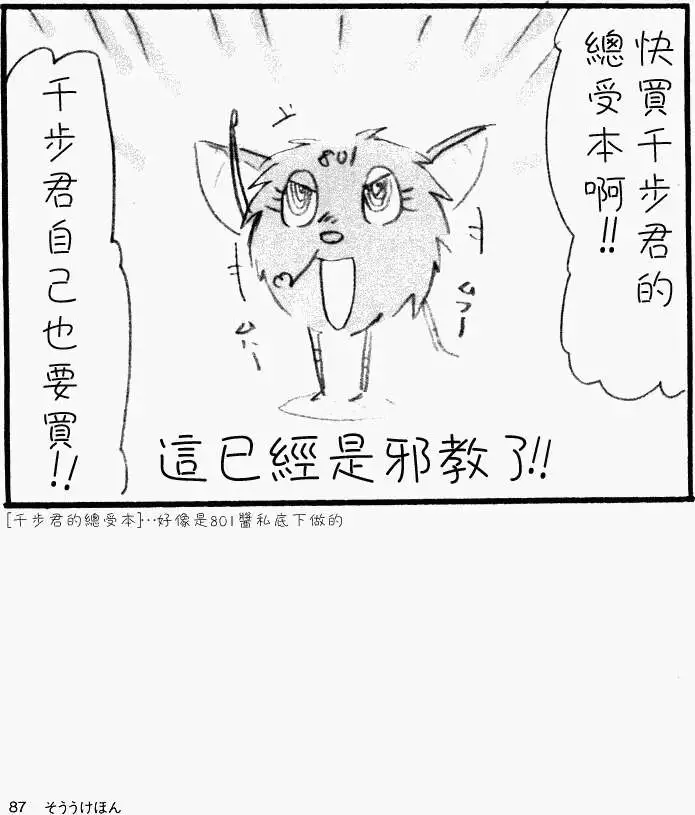 快買千步君的
總受本啊!!
千步君自己也要買!!
801
ムフー
ムハー
這已經是邪教了!!
[千步君的總受本]‥好像是801醬私底下做的
87 そううけほん